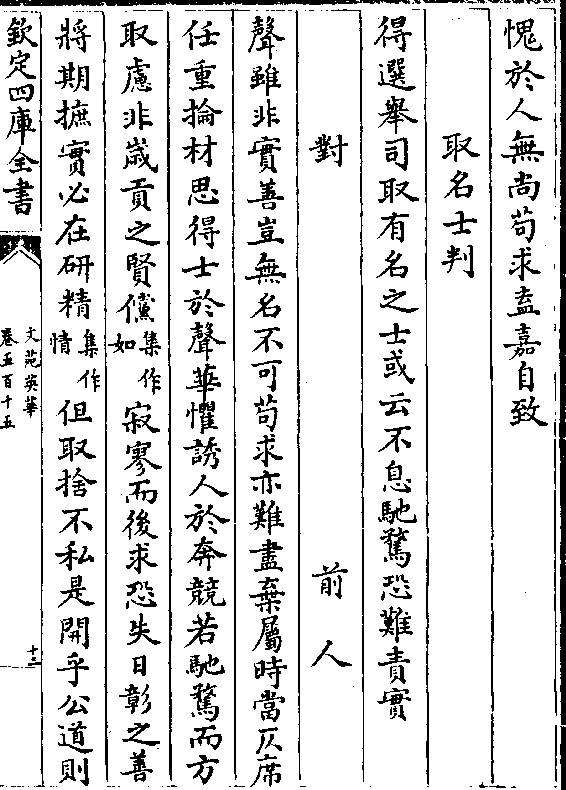 愧於人無尚苟求盍嘉自致
取名士判
得選舉司取有名之士或云不息馳騖恐難責實
對　前人
聲雖非實善豈無名不可苟求亦難盡棄屬時當仄席
任重掄材思得士於聲華懼誘人於奔競若馳騖而方
取慮非歲貢之賢儻集作如寂寥而後求恐失日彰之善
將期摭實必在研精集作情但取捨不私是開乎公道則
欽定四庫全書
文苑英華
卷五百十五
十三